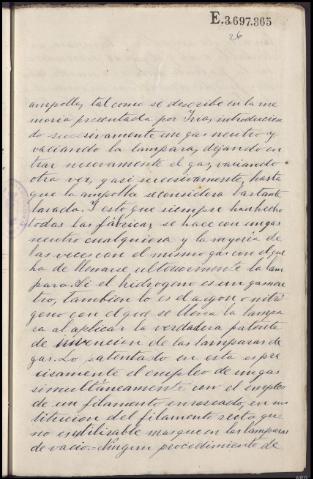 E.3.697.365
26
ampolla, tal como se describe en la me
moria presentada por Vras, introducien
do sucesivamente un gas neutro y
vaciando la lampara, dejando en
trar nuevamente el gas, vaciando
otra vez, y asi sucesivamente, hasta
que la ampolla se considera bastante
lavada. Y esto que siempre han hecho
todas las fábricas, se hace con un gas
neutro cualquiera y la mayoría de
las veces con el mismo gas con el que
ha de llenarse ulteriormente la lam
para. Si el hidrogeno es un gas neu
tro, tambien lo es el argon o nitró
geno con el que se llena la lampa
ra al aplicar la verdadera patente
de invencion de las lamparas de
gas. Lo patentado en esta es pre
cisamente el empleo de un gas
simultáneamente con el empleo
de un filamento enroscado, en sus
titucion del filamento recto que
no es utilizable mas que en las lamparas
de vacio. Ningun procedimiento de